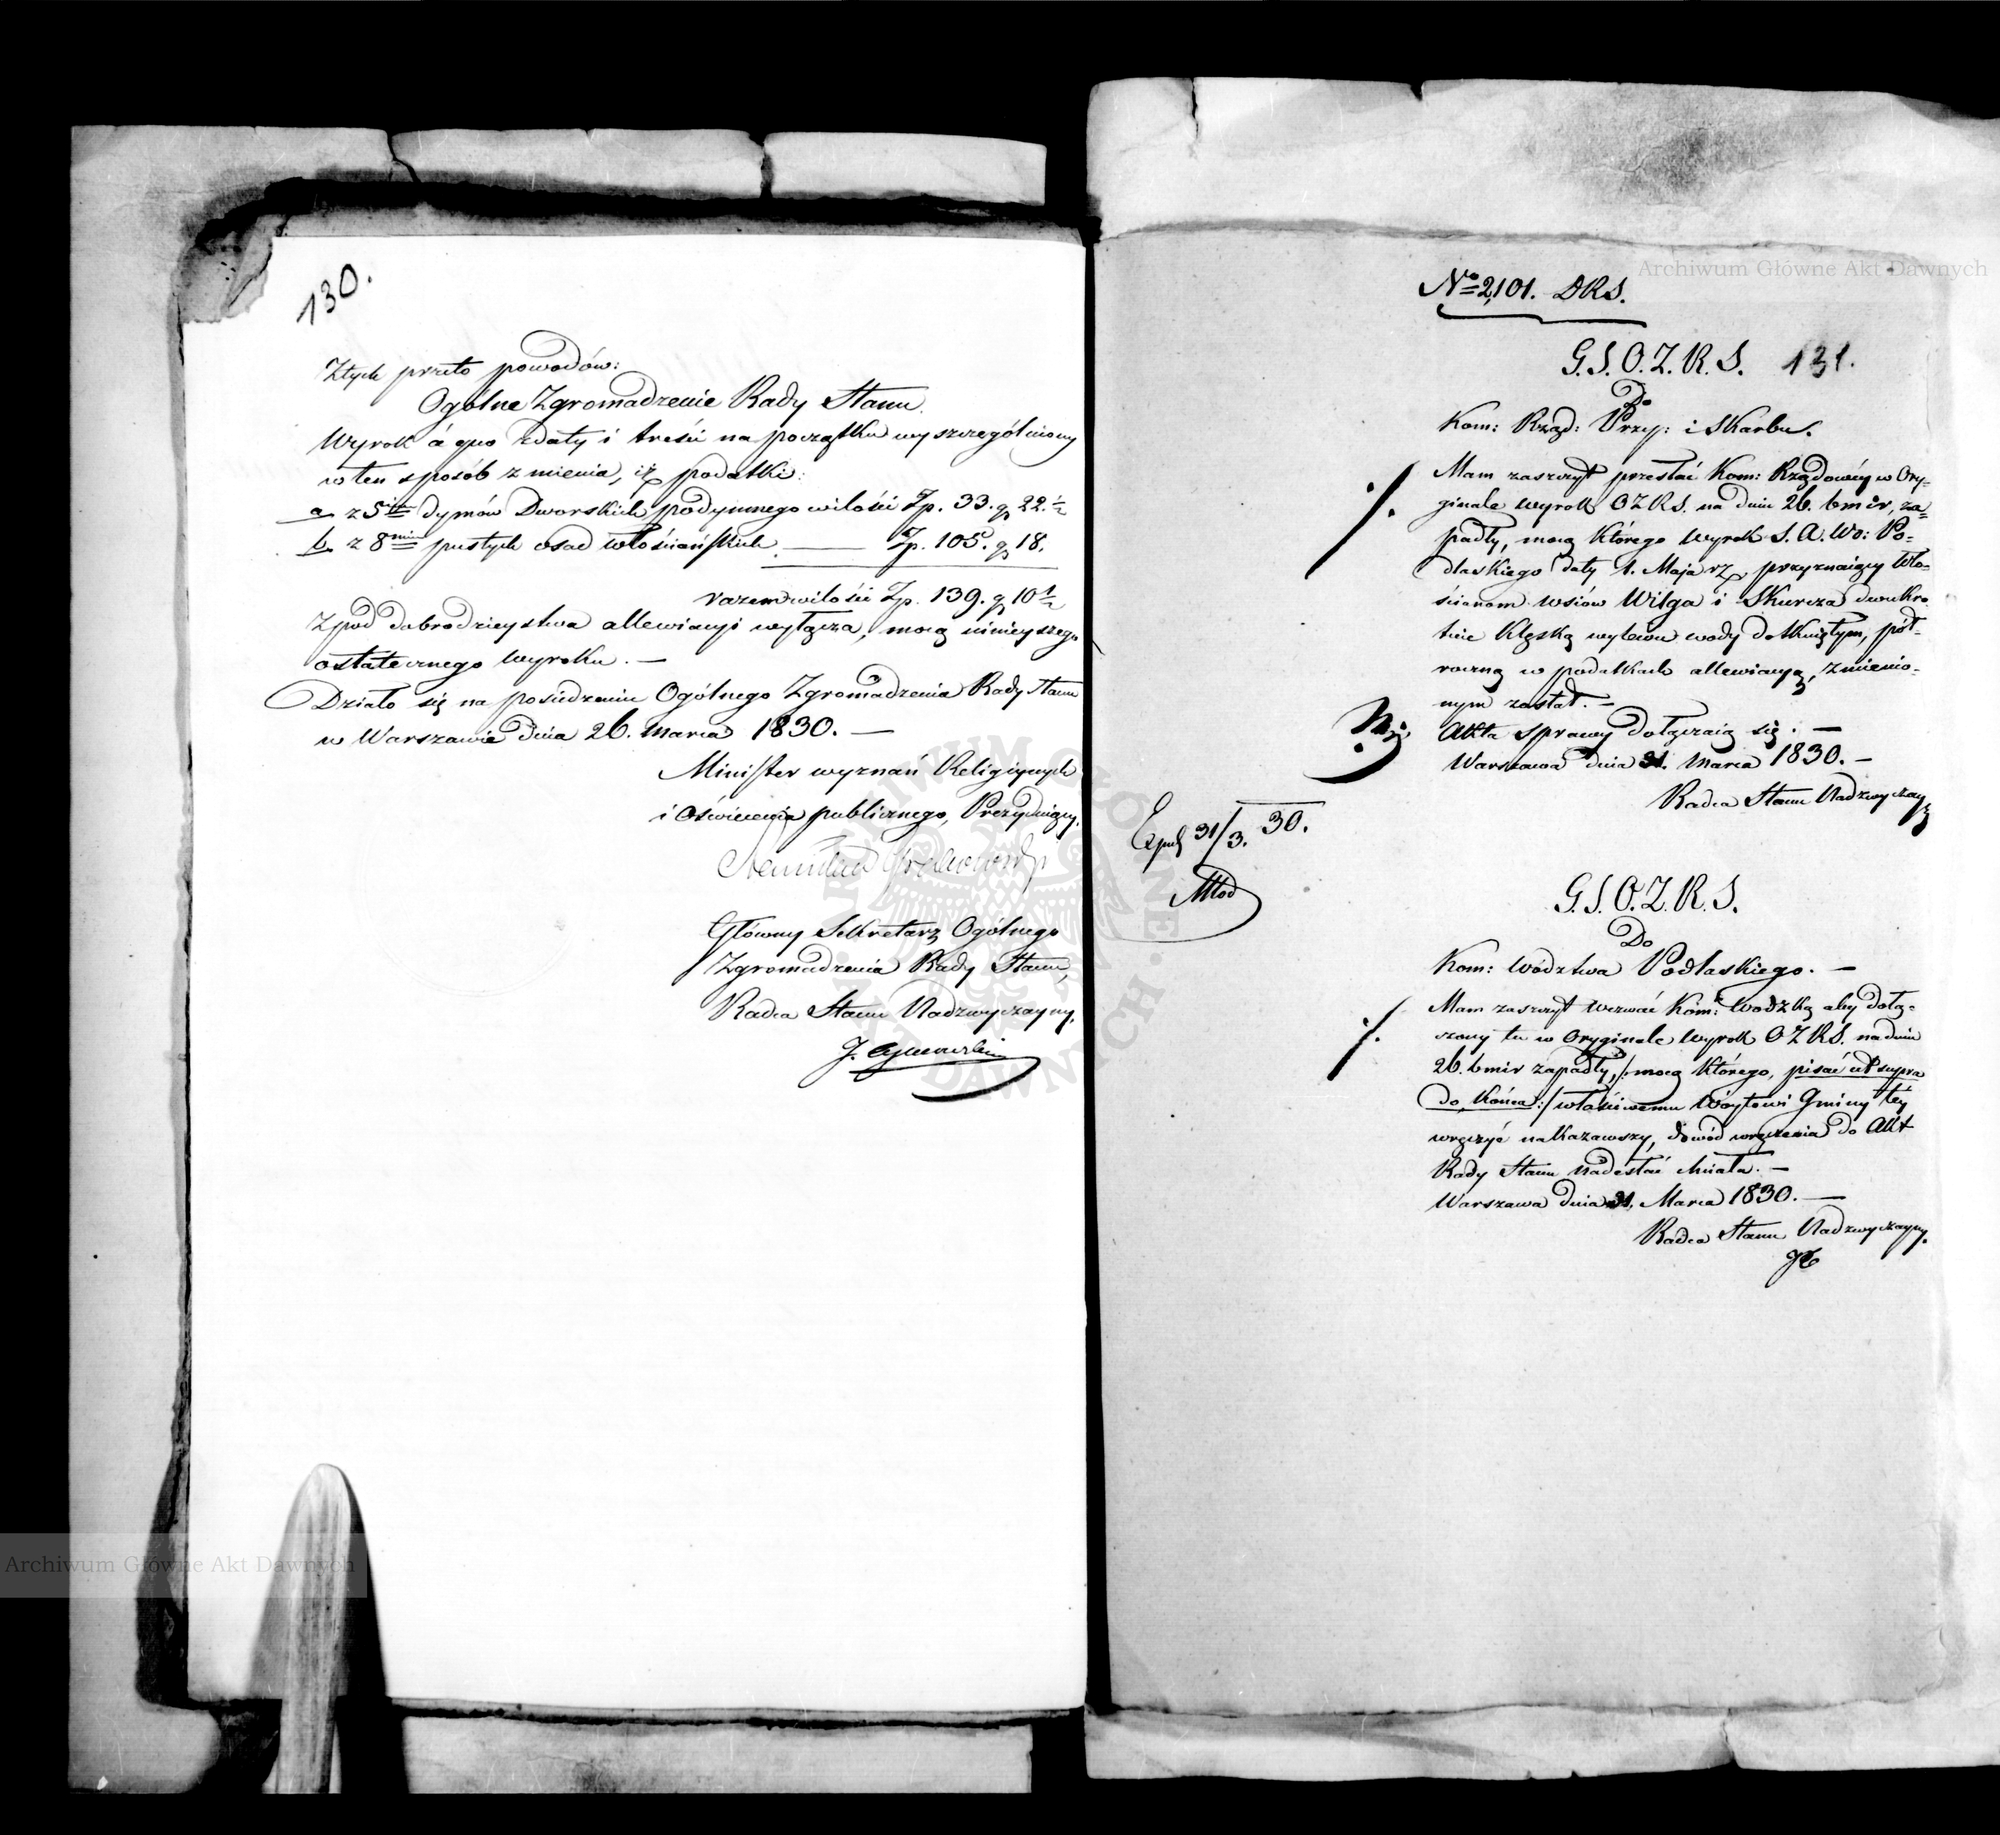 130.
Z tych przeto powodów:
Ogólne Zgromadzenie Rady Stanu.
Wyrok á quo z daty i treści na początku wyszczególniony
w ten sposób zmienia, iż podatki:
a z 5ciu dymów Dworskich podymnego w ilości Zp. 33. g 22.½
b z 8miu pustych osad włościańskich — Zp. 105. g 18.
razem w ilości Zp. 139. g 10½
z pod dobrodzieystwa allewiacyi wyłącza, mocą ninieyszego
ostatecznego wyroku. —
Działo się na posiedzeniu Ogólnego Zgromadzenia Rady Stanu
w Warszawie dnia 26. Marca 1830. —
Minister wyznań Religiynych
i Oświecenia publicznego, Prezyduiący,
Stanisław Grabowski
Główny Sekretarz Ogólnego
Zgromadzenia Rady Stanu,
Radca Stanu Nadzwyczayny,
J.
No 2,101. DRS.
G.S.O.Z.R.S. 131.
Do
Kom: Rząd: Przy: i Skarbu.
Mam zaszczyt przesłać Kom: Rządowéy w Ory-
ginale wyrok OZRS. na dniu 26. bmir, za-
padły, mocą którego wyrok S.A. Wo: Po-
dlaskiego daty 1. Maja rz, przyznaiący Wło-
ścianom wsiów Wilga i Skurcza dwukro
tnie klęską wylewu wody dotkniętym, pół-
roczną w podatkach allewiacyą, zmienio-
nym został. —
Akta sprawy dołączaią się. —
Warszawa dnia 31. Marca 1830. —
Radca Stanu Nadzwyczayny
Exped 31/3. 30.
Młod
G.S.O.Z.R.S.
Do
Kom: Wodztwa Podlaskiego. —
Mam zaszczyt wezwać Kom: Wodzką aby dołą-
czony tu w oryginale wyrok OZRS. na dniu
26. bmir zapadły, /: mocą którego, pisać ut supra
do końca :/ właściwemu Wóytowi Gminy téy
wręczyć nakazawszy, dowód wręczenia do Akt
Rady Stanu nadesłać chciała. —
Warszawa dnia 31. Marca 1830. —
Radca Stanu Nadzwyczayny.
Archiwum Główne Akt Dawnych
Archiwum Główne Akt Dawnych